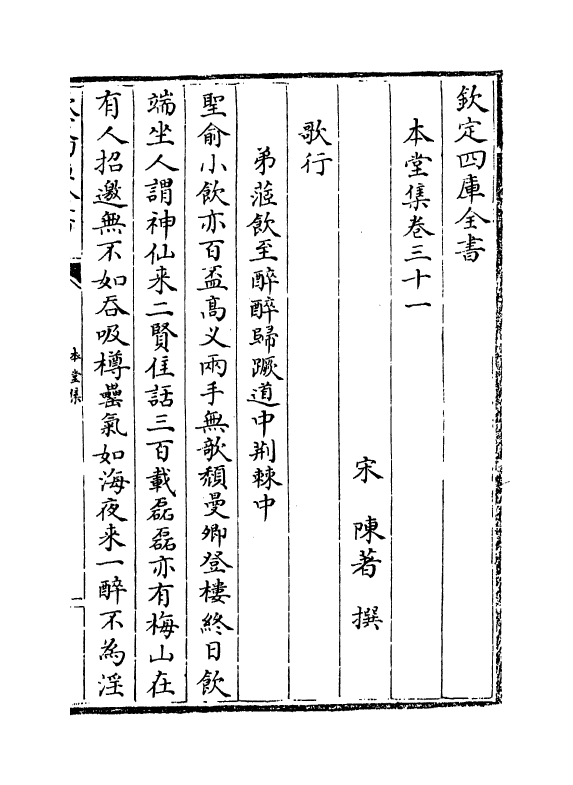 欽定四庫全書
本堂集卷三十一
宋 陳著 撰
歌行
弟莅飲至醉醉歸蹶道中荆棘中
聖俞小飲亦百盃髙义兩手無欹頽曼卿登樓終日飲
端坐人謂神仙来二賢佳話三百載磊磊亦有梅山在
有人招邀無不如吞吸樽罍氣如海夜来一醉不為淫
本堂集